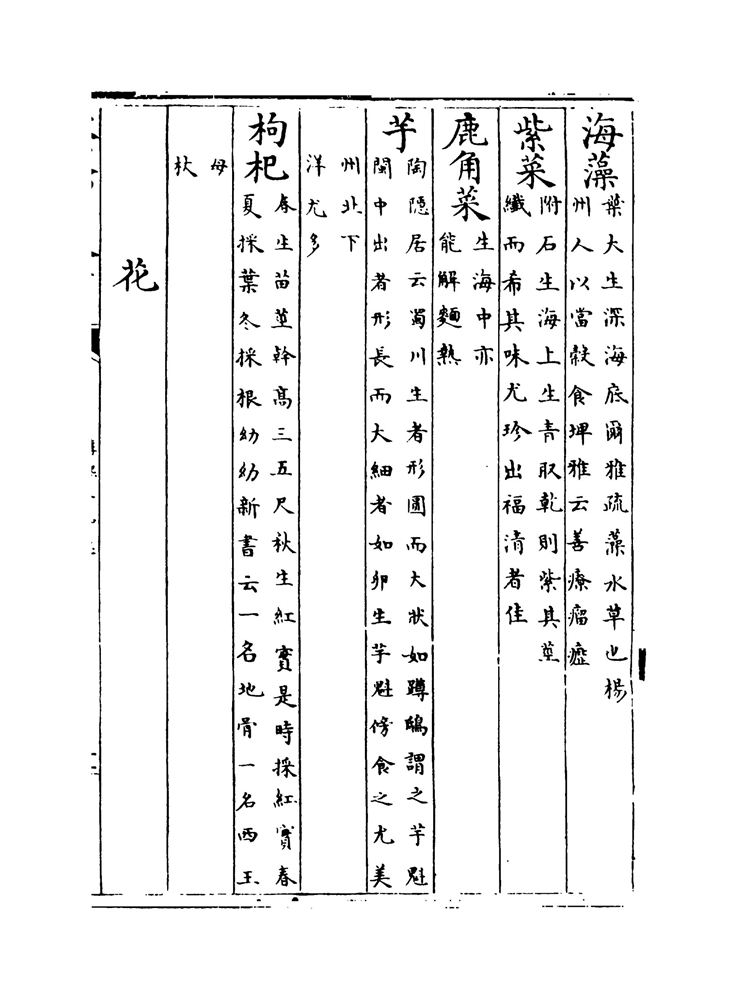 海藻葉大生深海底爾雅疏藻水草也楊
州人以當穀食埤雅云善療瘤癧
紫菜附石生海上生青取乾則紫其莖
纖而希其味尤珍出福清者佳
鹿角菜生海中亦
能解麵熱
芋陶隠居云蜀川生者形圓而大狀如蹲鴟謂之芋魁
閩中出者形長而大細者如卵生芋魁傍食之尤美
州北下
洋尤多
枸杞春生苗莖幹高三五尺秋生紅實是時採紅實春
夏採葉冬採根幼幼新書云一名地骨一名西王
母
杖
花